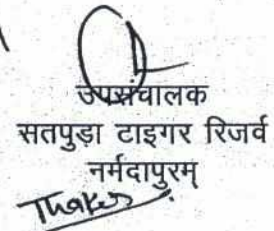 उपसंचालक
सतपुड़ा टाइगर रिजर्व
नर्मदापुरम्